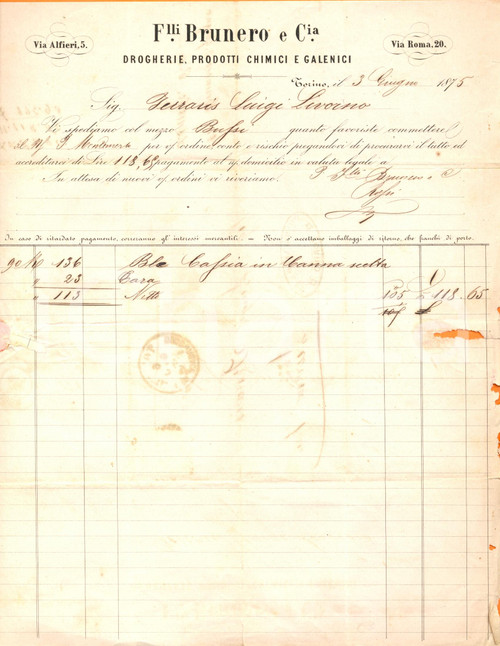 Flli Brunero e Cia
Via Alfieri, 5.
Via Roma, 20.
DROGHERIE, PRODOTTI CHIMICI E GALENICI
Torino, il 3 Giugno 1875
Sig. Ferraris Luigi Livorno
Vi spediamo col mezzo Bussi quanto favoriste commetterci
per v/ ordine, conto e rischio pregandovi di procurarci il tutto ed
accreditarci di Lire 118,65 pagamento al n/ domicilio in valuta legale a
In attesa di nuovi v/ ordini vi riveriamo.
P. Flli Brunero e C
In caso di ritardato pagamento, correranno gli interessi mercantili. — Non s'accettano imballaggi di ritorno, che franchi di porto.
136 Cassia in Canna scelta
" 23 Tara
" 113 Netto 105 £ 118 - 65